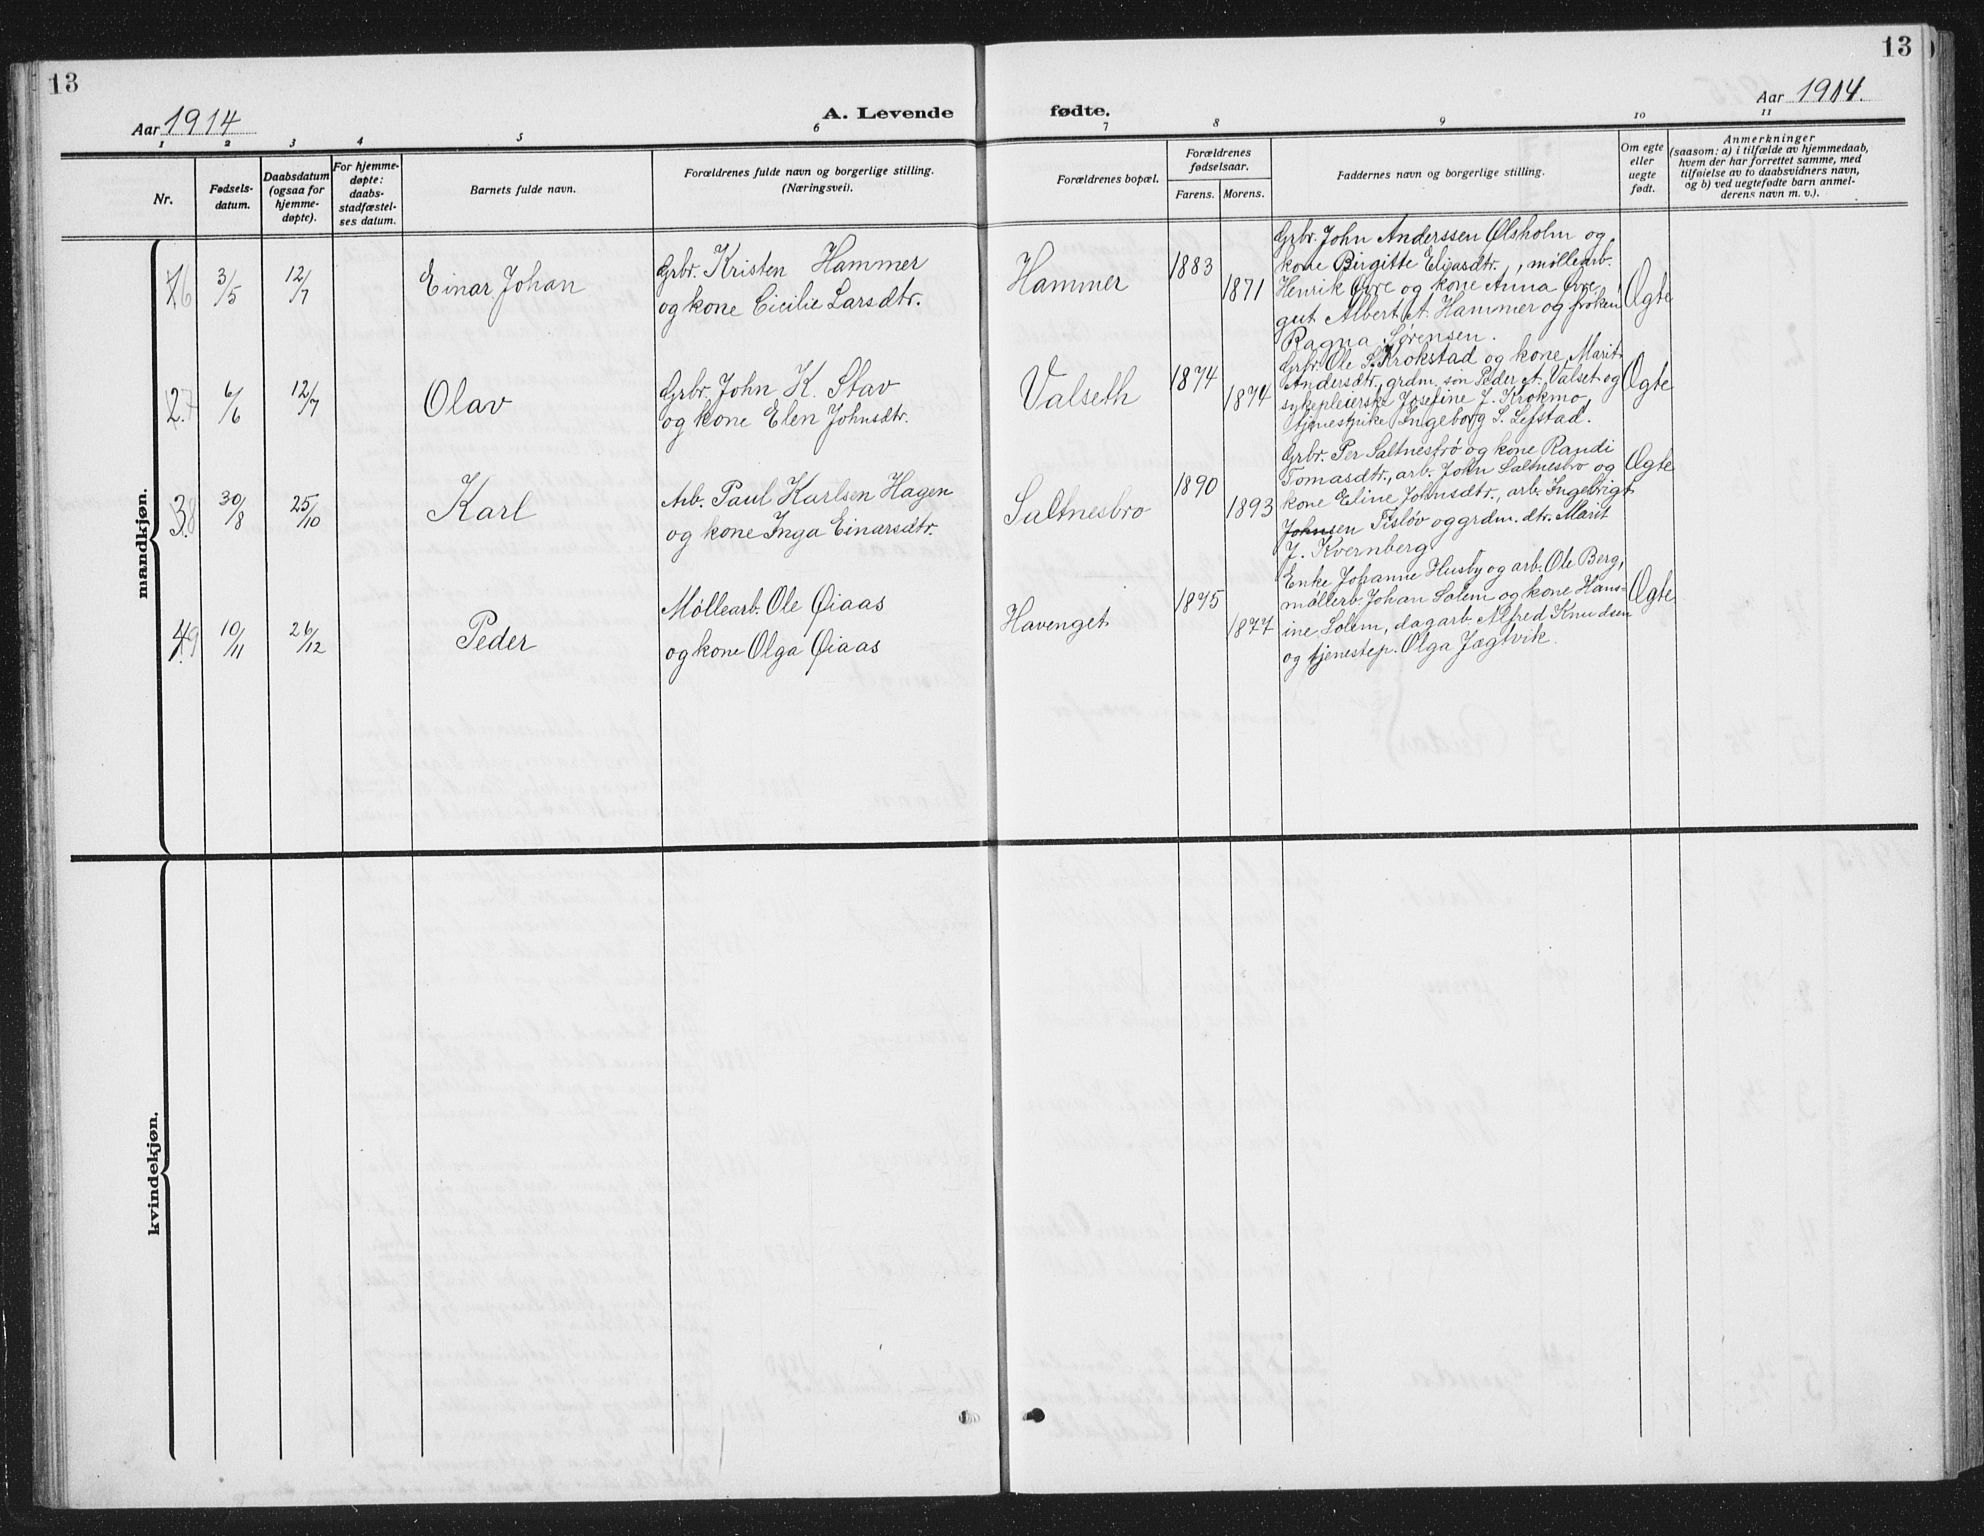 13
13
Aar 1914
A. Levende fødte.
Aar 1914.
1 2 3 4 5 6 7 8 9 10 11
Nr.
Fødsels-
datum.
Daabsdatum
(ogsaa for
hjemme-
døpte).
For hjemme-
døpte:
daabs-
stadfæstel-
ses datum.
Barnets fulde navn.
Forældrenes fulde navn og borgerlige stilling.
(Næringsvei).
Forældrenes bopæl.
Forældrenes
fødselsaar.
Farens. Morens.
Faddernes navn og borgerlige stilling.
Om egte
eller
uegte
født.
Anmerkninger
(saasom: a) i tilfælde av hjemmedaab,
hvem der har forrettet samme, med
tilføielse av to daabsvidners navn,
og b) ved uegtefødte barn anmel-
derens navn m. v.).
mandkjøn.
6 3/5 12/7 Einar Johan
Grbr. Kristen Hammer
og kone Cicilie Larsdtr.
Hammer 1883 1871
Grbr. John Anderssen Ølsholm og
kone Birgitte Eliasdtr., møllearb.
Henrik Øvre og kone Anna Øvre,
gut Albert A. Hammer og frøken
Ragna Sørensen.
Ægte
2.7 6/6 12/7 Olav
Grbr. John K. Stav
og kone Elen Johnsdtr.
Valseth 1874 1874
Grbr. Ole S. Krokstad og kone Marit
Andersdtr., grdm. søn Peder A. Valset og
sykepleierske Josefine J. Krokmo,
tjenestpike Ingeborg S. Lefstad.
Ægte
3.8 30/8 25/10 Karl
Arb. Paul Karlsen Hagen
og kone Inga Einarsdtr.
Saltnesbro 1890 1893
Grbr. Per Saltnesbrø og kone Randi
Tomasdtr., arb. John Saltnesbro og
kone Eline Johnsdtr., arb. Ingebrigt
Johnsen Tisløv og grdm. dtr. Marit
J. Kvernberg
Ægte
4.9 10/11 26/12 Peder
Møllearb. Ole Øiaas
og kone Olga Øiaas
Havenget 1875 1877
Enke Johanne Husby og arb. Ole Berg,
møllerb. Johan Solem og kone Hans-
ine Solem, dagarb. Alfred Knudsen
og tjenestep. Olga Jægtvik.
Ægte
kvindekjøn.